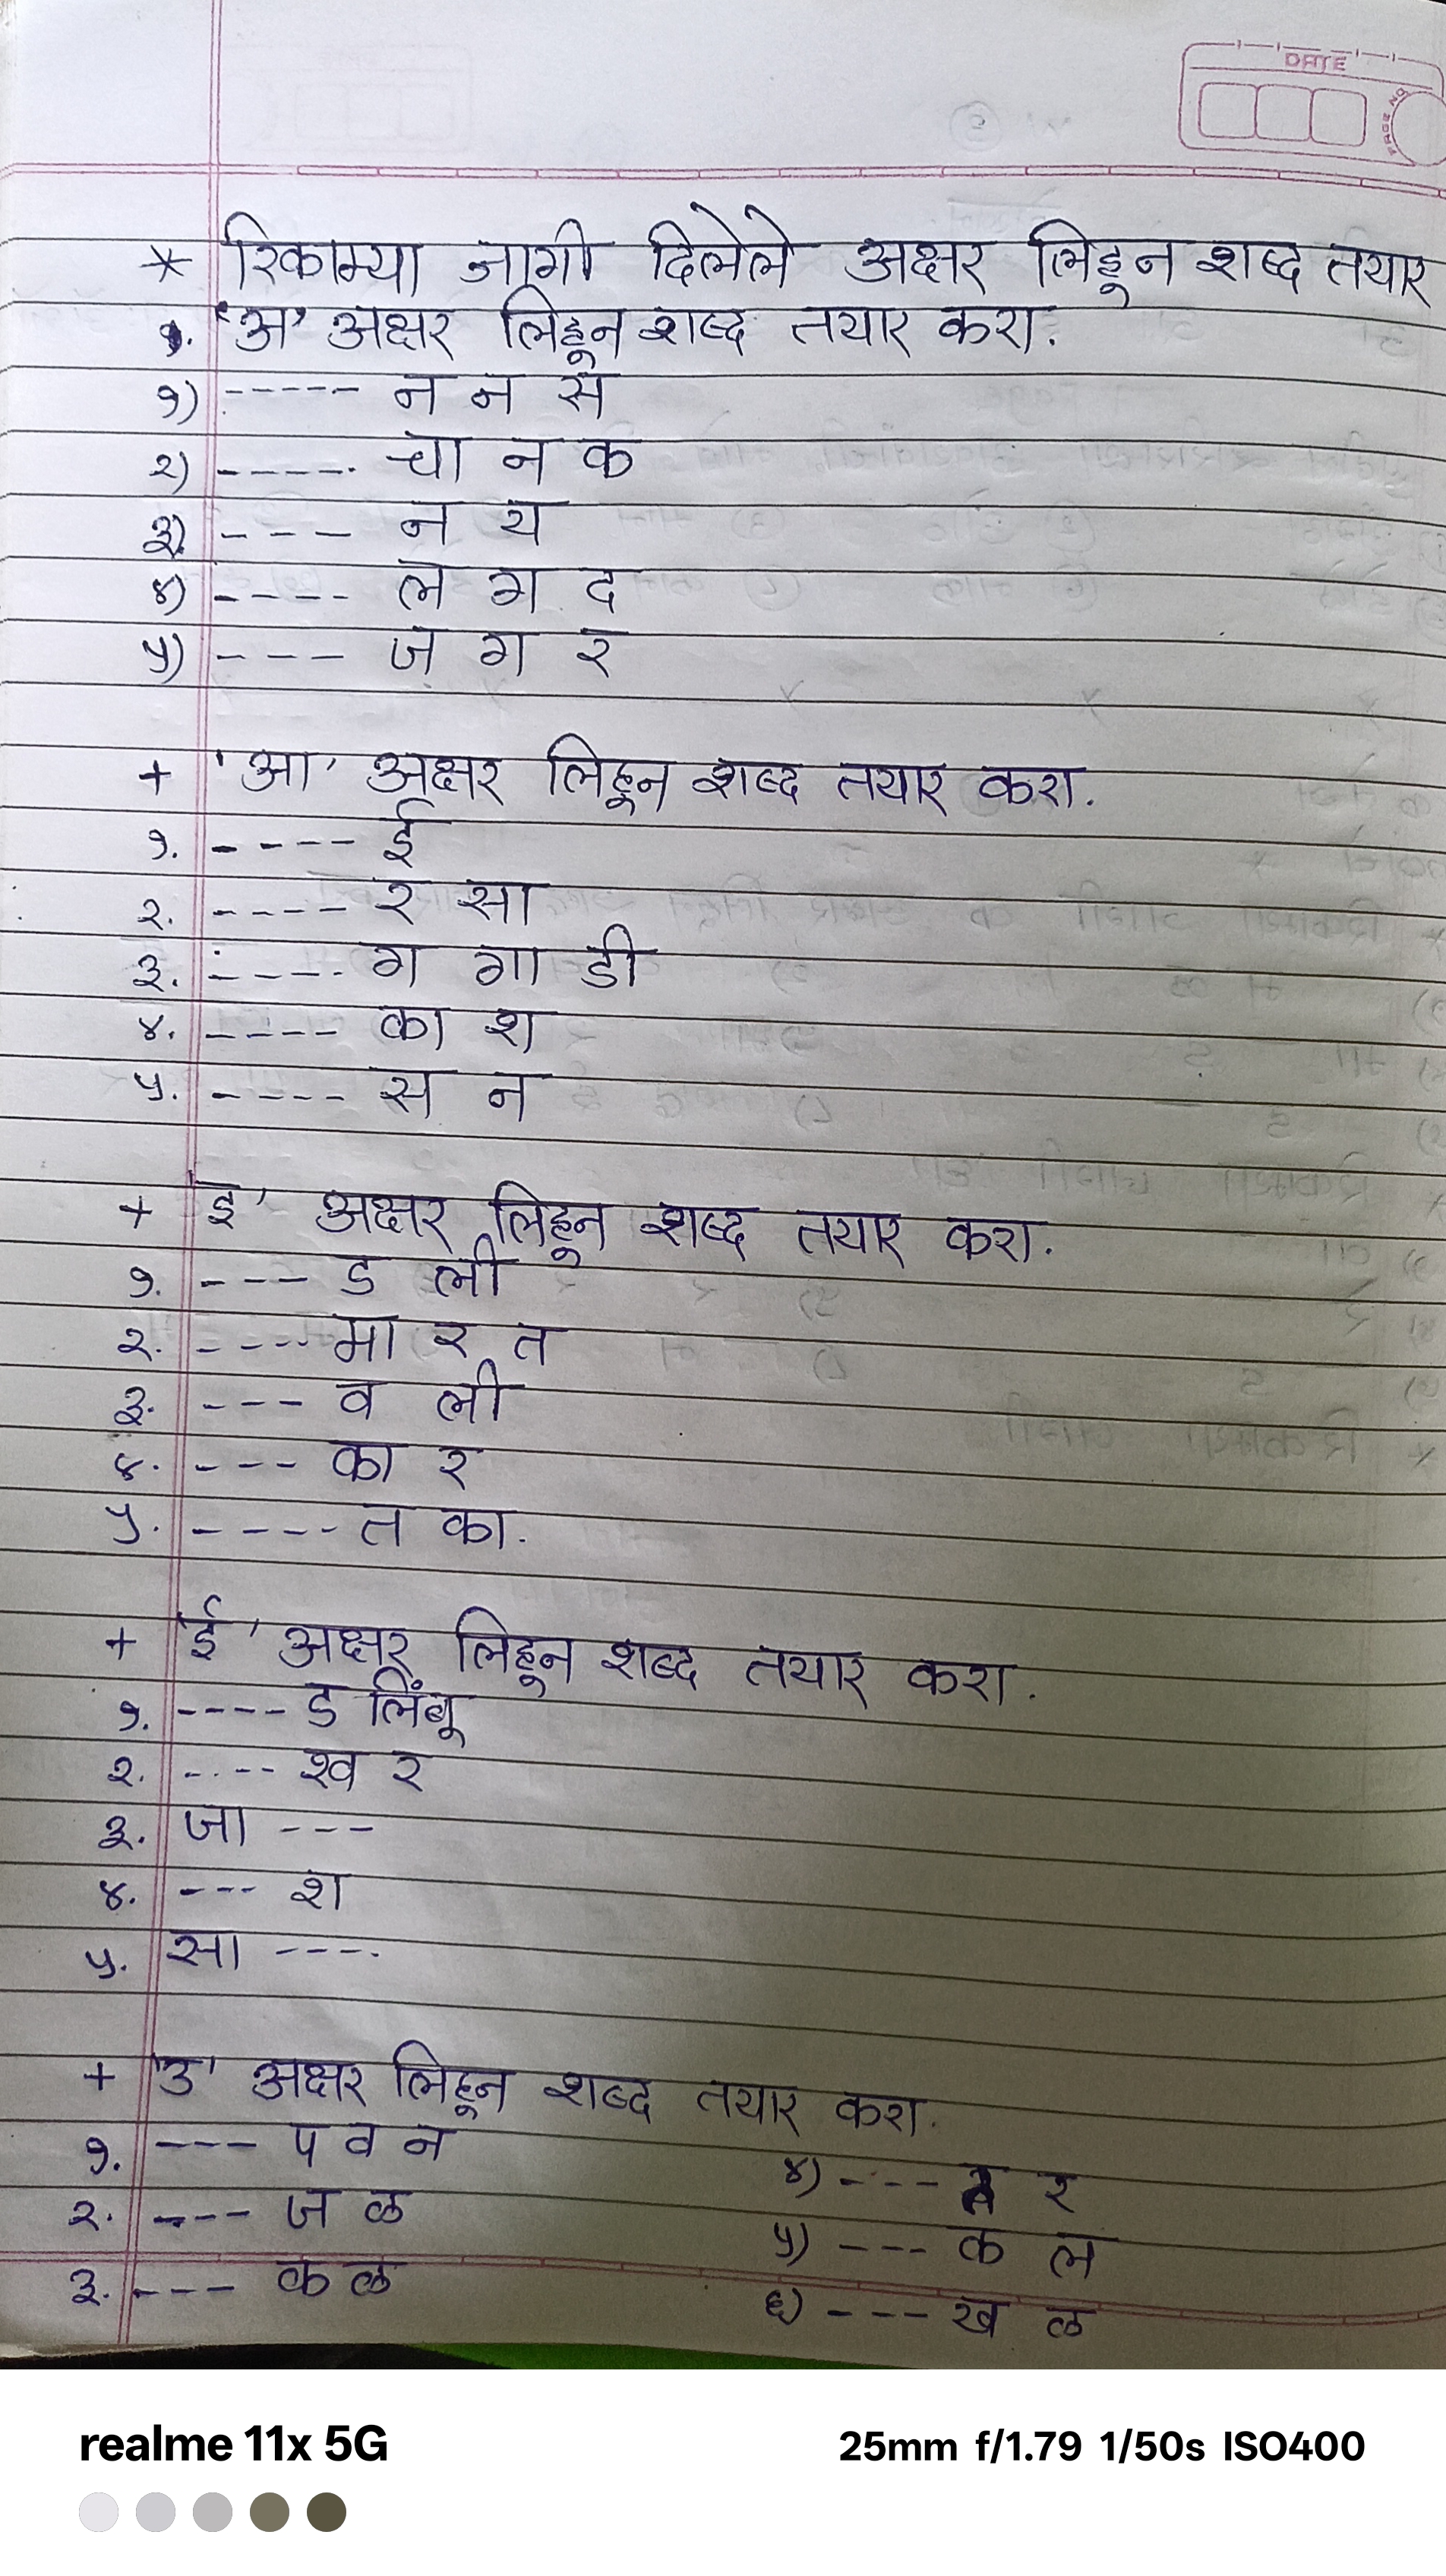 DATE
* रिकाम्या जागी दिलेले अक्षर लिहून शब्द तयार
१. 'अ' अक्षर लिहून शब्द तयार करा.
१) ----- न न स
२) ----- चा न क
३) --- न य
४) ---- ल ग द
५) --- ज ग र
+ 'आ' अक्षर लिहून शब्द तयार करा.
१. ---- ई
२. ---- र सा
३. ----- ग गा डी
४. ---- का श
५. ----- स न
+ 'इ' अक्षर लिहून शब्द तयार करा.
१. --- ड ली
२. ----- मा र त
३. --- व ली
४. --- का र
५. ----- त का.
+ 'ई' अक्षर लिहून शब्द तयार करा.
१. ---- ड लिंबू
२. ----- ख र
३. जा ---
४. --- श
५. सा ----.
+ 'उ' अक्षर लिहून शब्द तयार करा.
१. --- प व न
२. ---- ज ळ
३. --- क ळ
४) ---- र
५) --- क ल
६) --- ख ळ
realme 11x 5G
25mm f/1.79 1/50s ISO400